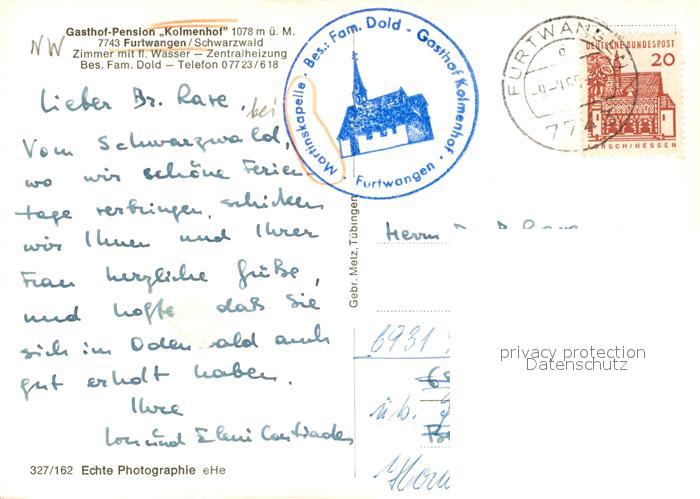 Gasthof-Pension „Kolmenhof" 1078 m ü. M.
7743 Furtwangen/Schwarzwald
Zimmer mit fl. Wasser — Zentralheizung
Bes. Fam. Dold — Telefon 07723/618
NW
Martinskapelle · Bes.: Fam. Dold - Gasthof Kolmenhof · Furtwangen ·
bei
FURTWANGEN
7743
DEUTSCHE BUNDESPOST
20
LORSCH/HESSEN
Lieber Br. Rave,
Vom Schwarzwald,
wo wir schöne Ferien-
tage verbringen, schicken
wir Ihnen und Ihrer
Frau herzliche Grüße,
und hoffe daß Sie
sich im Odenwald auch
gut erholt haben.
Ihre
und Eleni
Gebr. Metz, Tübingen
Herrn
6931
üb.
privacy protection
Datenschutz
327/162 Echte Photographie eHe